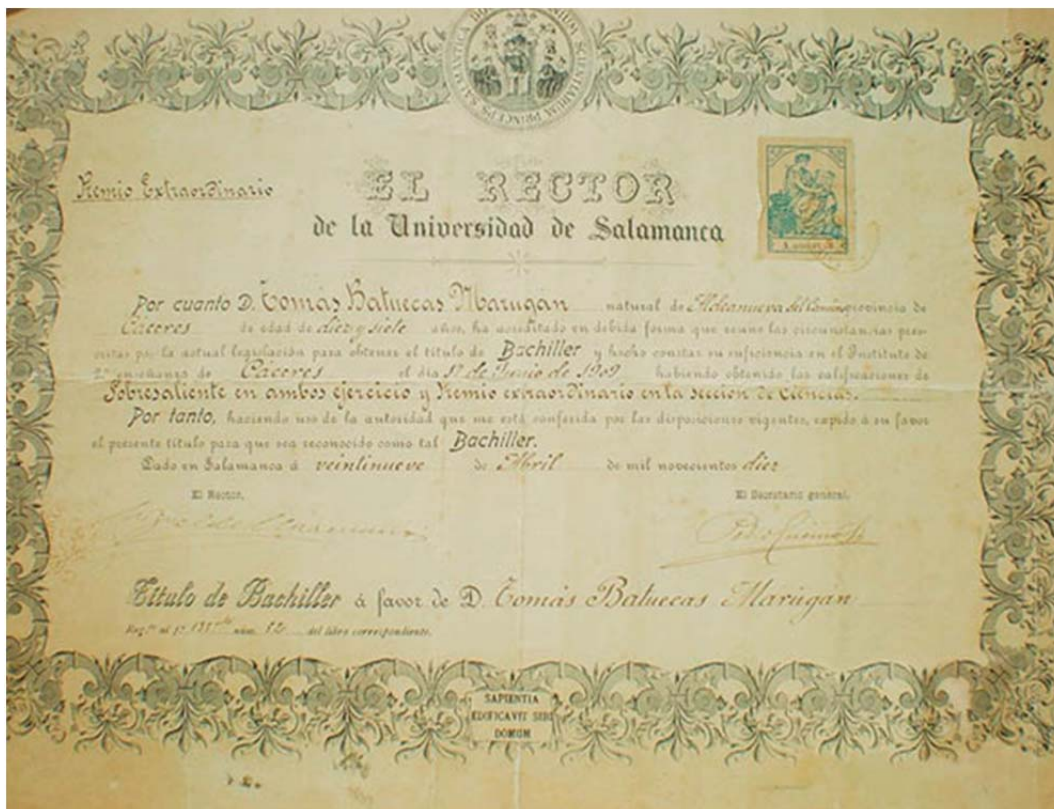 OMNIUM SCIENTIARUM PRINCEPS SALMANTICA DOCET
Premio Extraordinario
EL RECTOR
de la Universidad de Salamanca
Por cuanto D. Tomás Batuecas Marugán natural de Aldeanueva del Camino provincia de
Cáceres de edad de diez y siete años, ha acreditado en debida forma que reune las circunstancias pres-
critas por la actual legislación para obtener el título de Bachiller y hecho constar su suficiencia en el Instituto de
2.ª enseñanza de Cáceres el día 17 de Junio de 1909 habiendo obtenido las calificaciones de
Sobresaliente en ambos ejercicio y Premio extraordinario en la sección de Ciencias.
Por tanto, haciendo uso de la autoridad que me está conferida por las disposiciones vigentes, expido á su favor
el presente título para que sea reconocido como tal Bachiller.
Dado en Salamanca á veintinueve de Abril de mil novecientos diez
El Rector, El Secretario general,
Título de Bachiller á favor de D. Tomás Batuecas Marugán
núm. del libro correspondiente.
SAPIENTIA
EDIFICAVIT SIBI
DOMUM